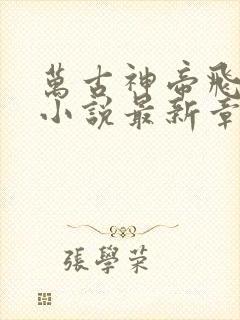 萬古神帝飛
小說最新章
張學荣